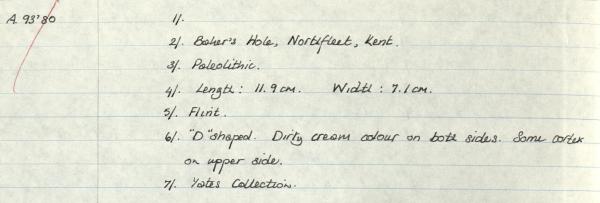 A. 93'80 1/.
2/. Baker's Hole, Northfleet, Kent.
3/. Paleolithic.
4/. Length : 11.9 cm. Width : 7.1 cm.
5/. Flint.
6/. "D" shaped. Dirty cream colour on both sides. Some cortex
on upper side.
7/. Yates Collection.